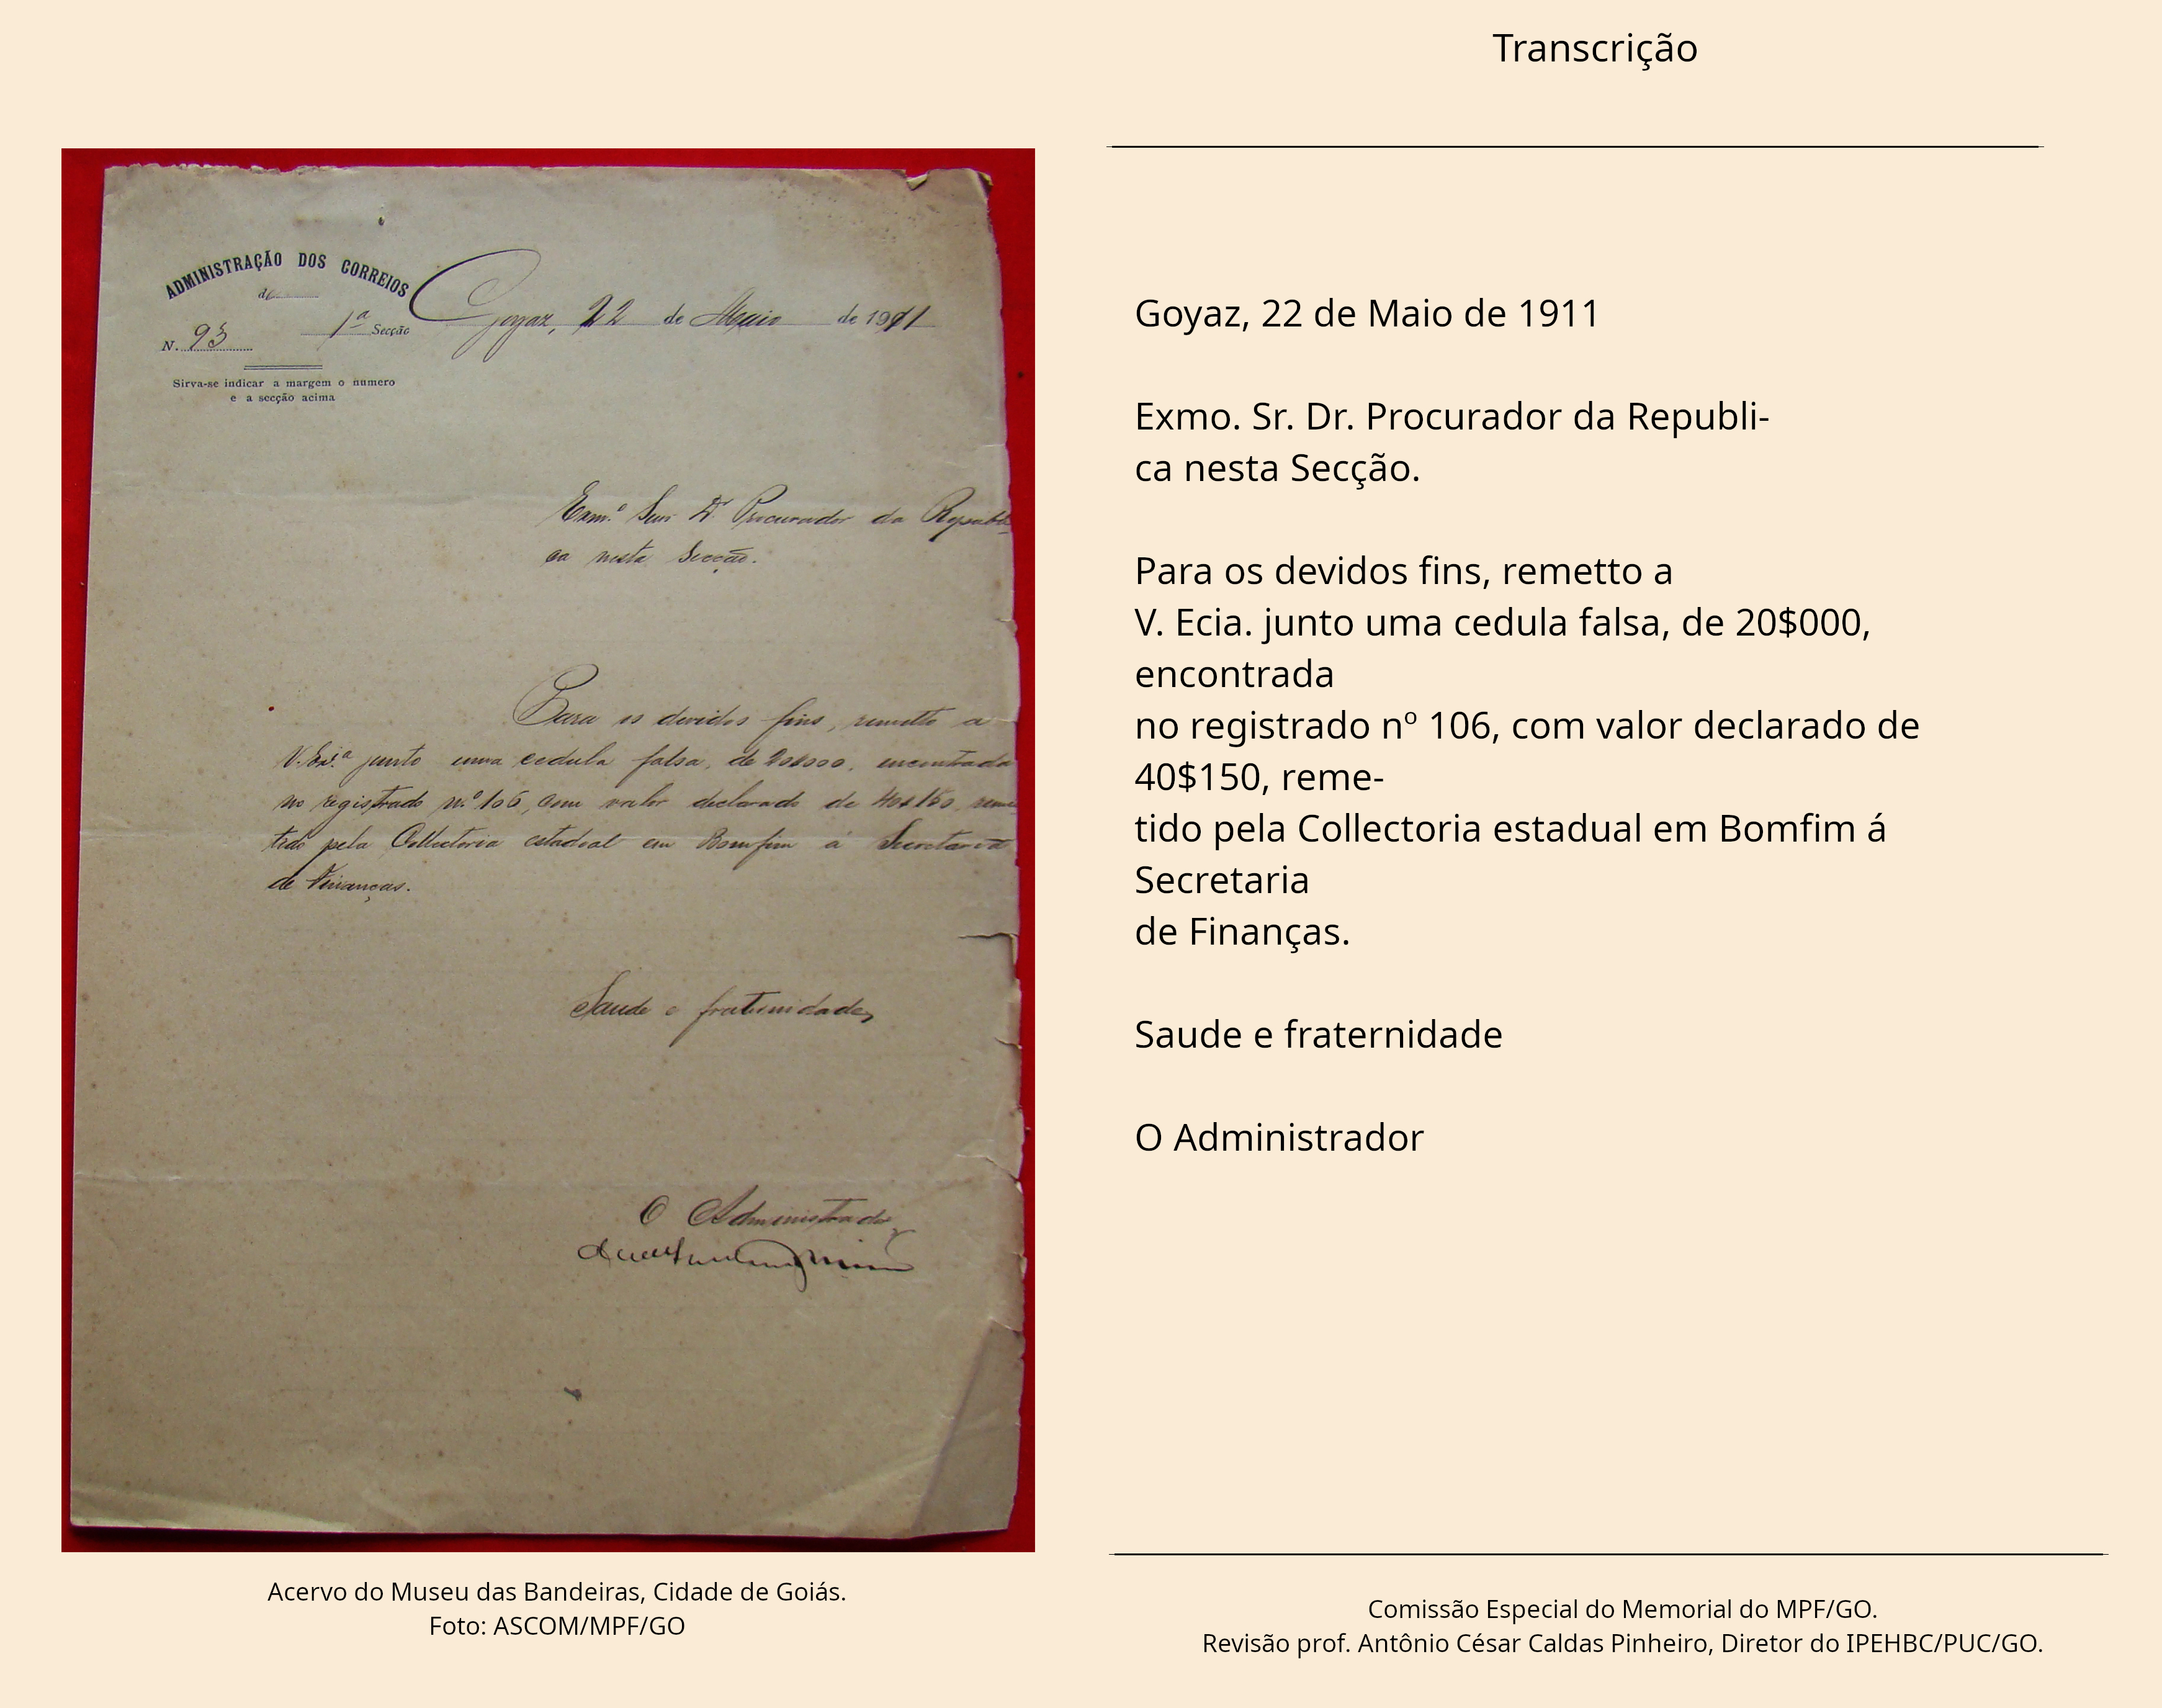 Transcrição
ADMINISTRAÇÃO DOS CORREIOS
de
1ª Secção
N. 93
Sirva-se indicar a margem o numero
e a secção acima
Goyaz, 22 de Maio de 1911
Exmº Snr Dr Procurador da Republi-
ca nesta Secção.
Para os devidos fins, remetto a
V. Exª junto uma cedula falsa, de 20$000, encontrada
no registrado nº 106, com valor declarado de 40$150, reme-
tido pela Collectoria estadoal em Bomfim á Secretaria
de Finanças.
Saude e fraternidade,
O Administrador
Acervo do Museu das Bandeiras, Cidade de Goiás.
Foto: ASCOM/MPF/GO
Goyaz, 22 de Maio de 1911
Exmo. Sr. Dr. Procurador da Republi-
ca nesta Secção.
Para os devidos fins, remetto a
V. Ecia. junto uma cedula falsa, de 20$000,
encontrada
no registrado nº 106, com valor declarado de
40$150, reme-
tido pela Collectoria estadual em Bomfim á
Secretaria
de Finanças.
Saude e fraternidade
O Administrador
Comissão Especial do Memorial do MPF/GO.
Revisão prof. Antônio César Caldas Pinheiro, Diretor do IPEHBC/PUC/GO.